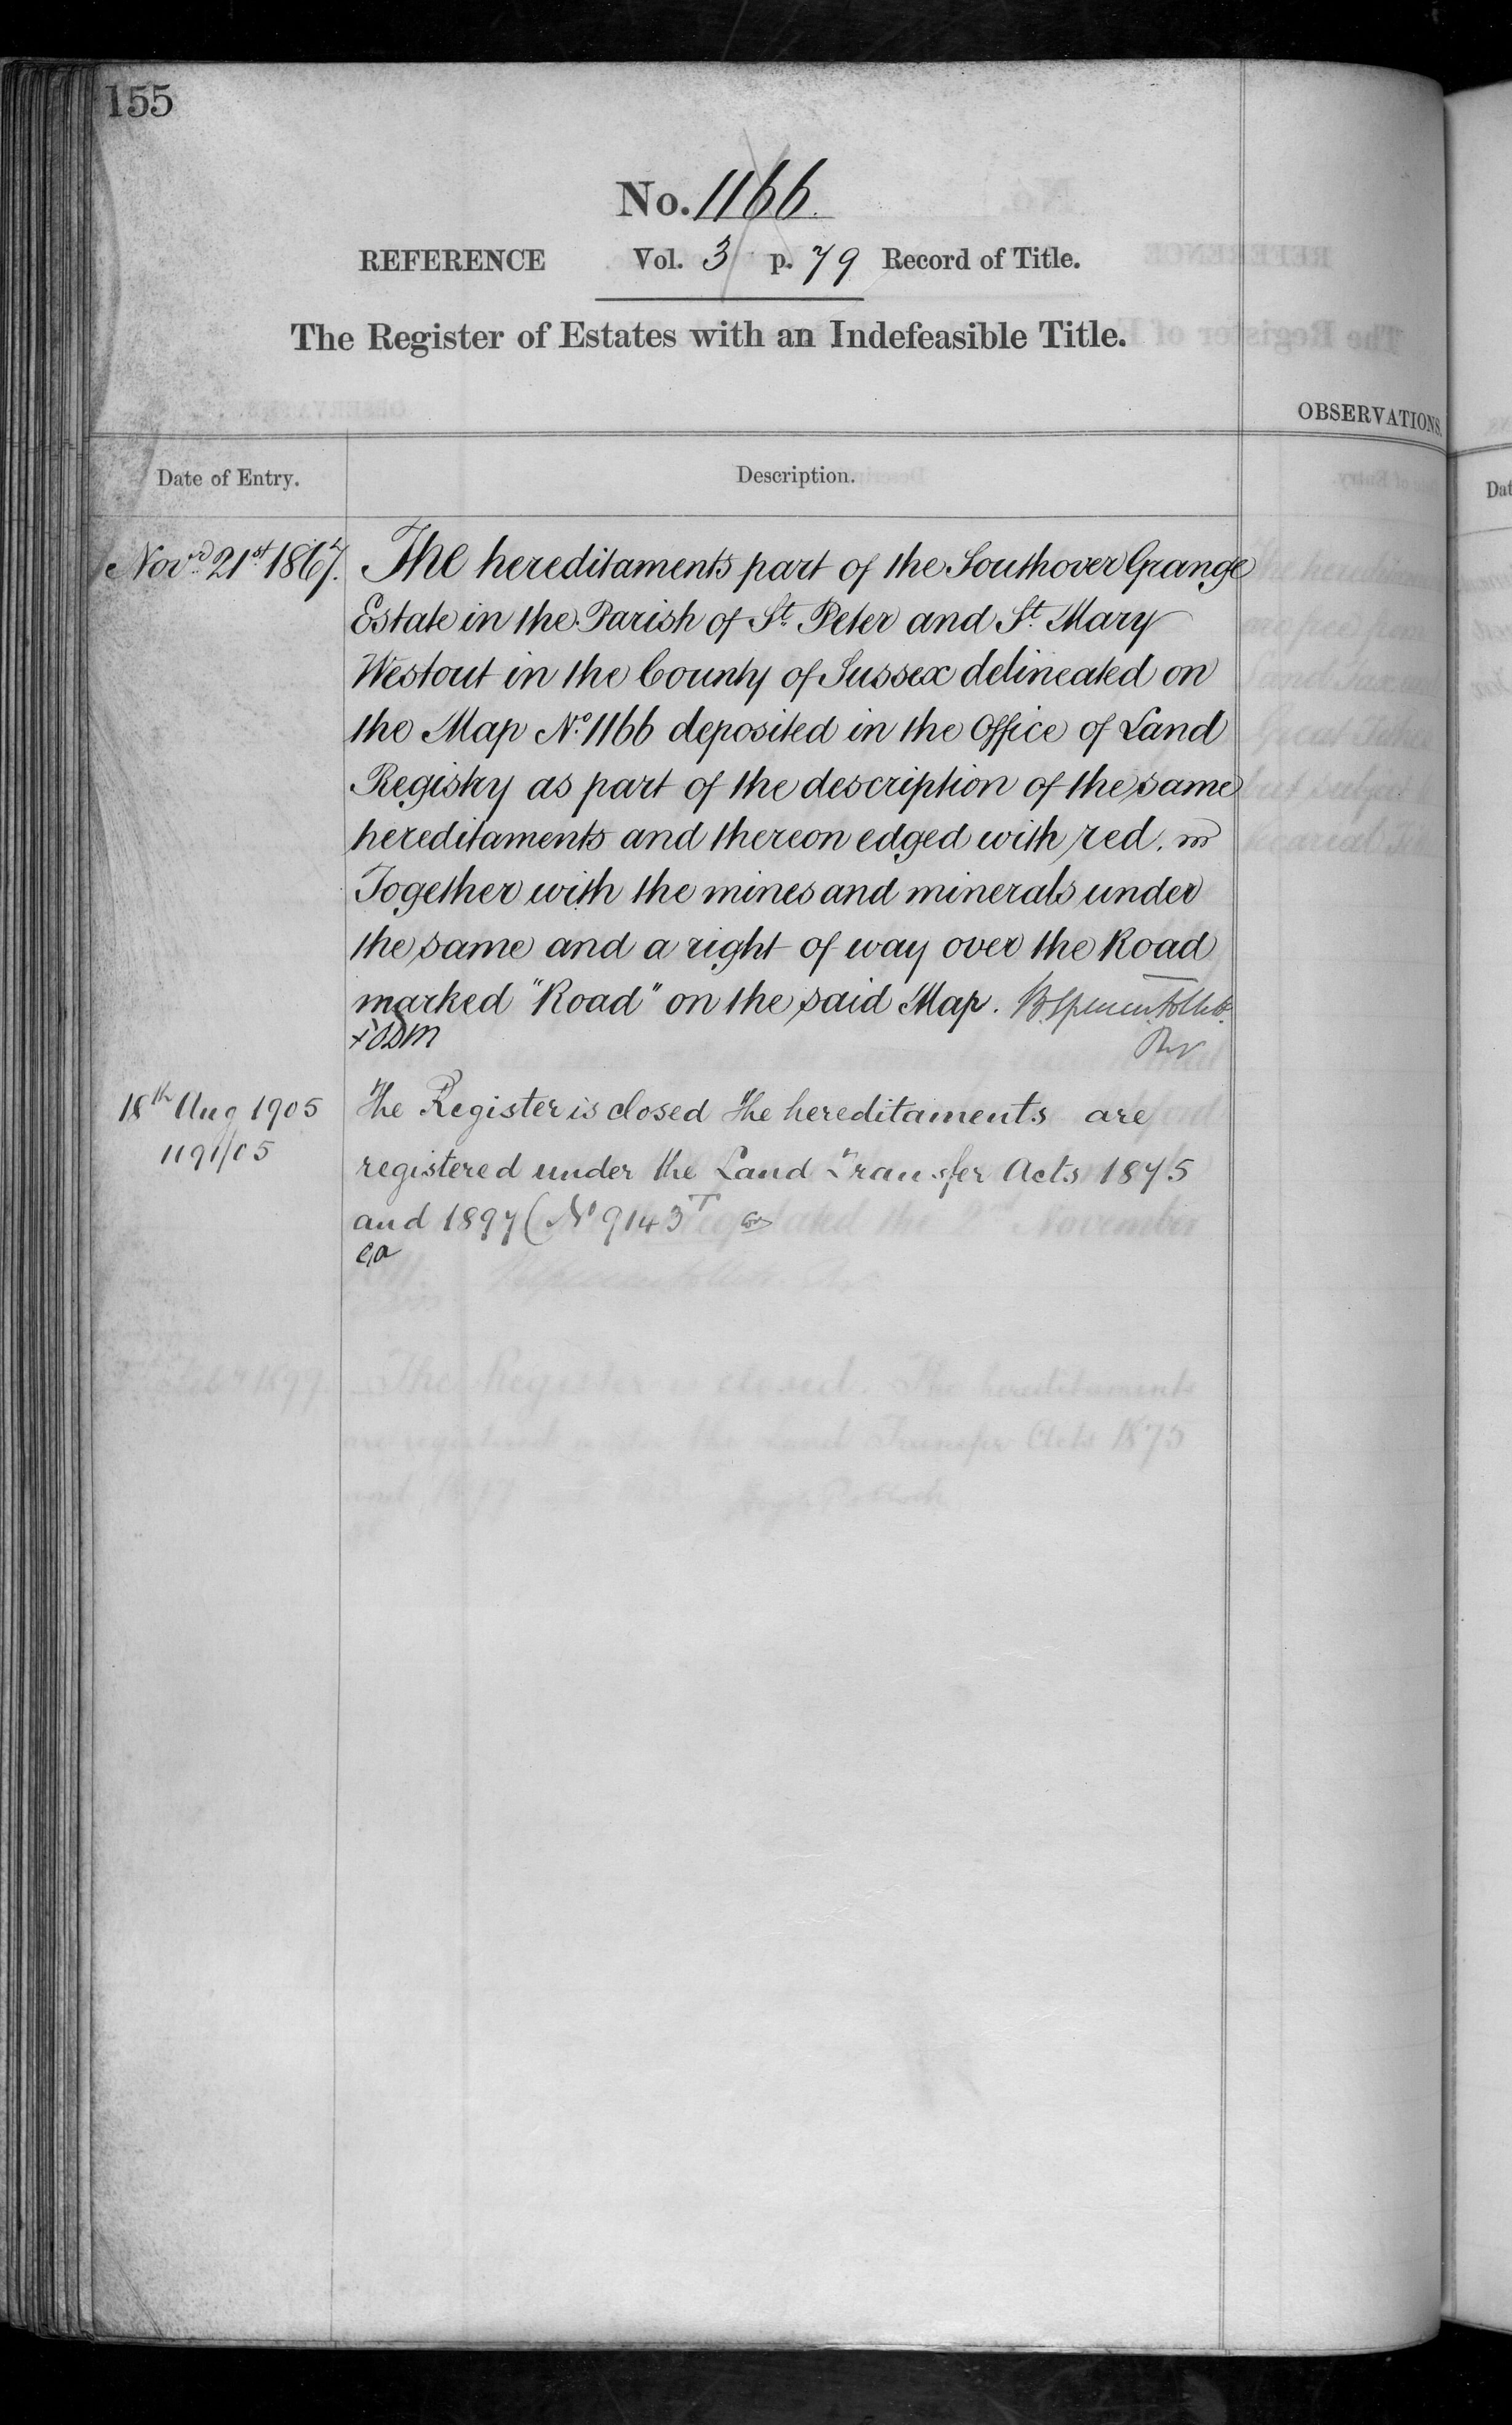 155
No. 1166.
REFERENCE Vol. 3 p. 79 Record of Title.
The Register of Estates with an Indefeasible Title.
OBSERVATIONS.
Date of Entry. Description.
Novr. 21st 1867. The hereditaments part of the Southover Grange
Estate in the Parish of St. Peter and St. Mary
Westout in the County of Sussex delineated on
the Map No. 1166 deposited in the Office of Land
Registry as part of the description of the same
hereditaments and thereon edged with red.
Together with the mines and minerals under
the same and a right of way over the Road
marked "Road" on the said Map.
18th Aug 1905 The Register is closed The hereditaments are
1191/05 registered under the Land Transfer Acts 1875
and 1897 (No 9143